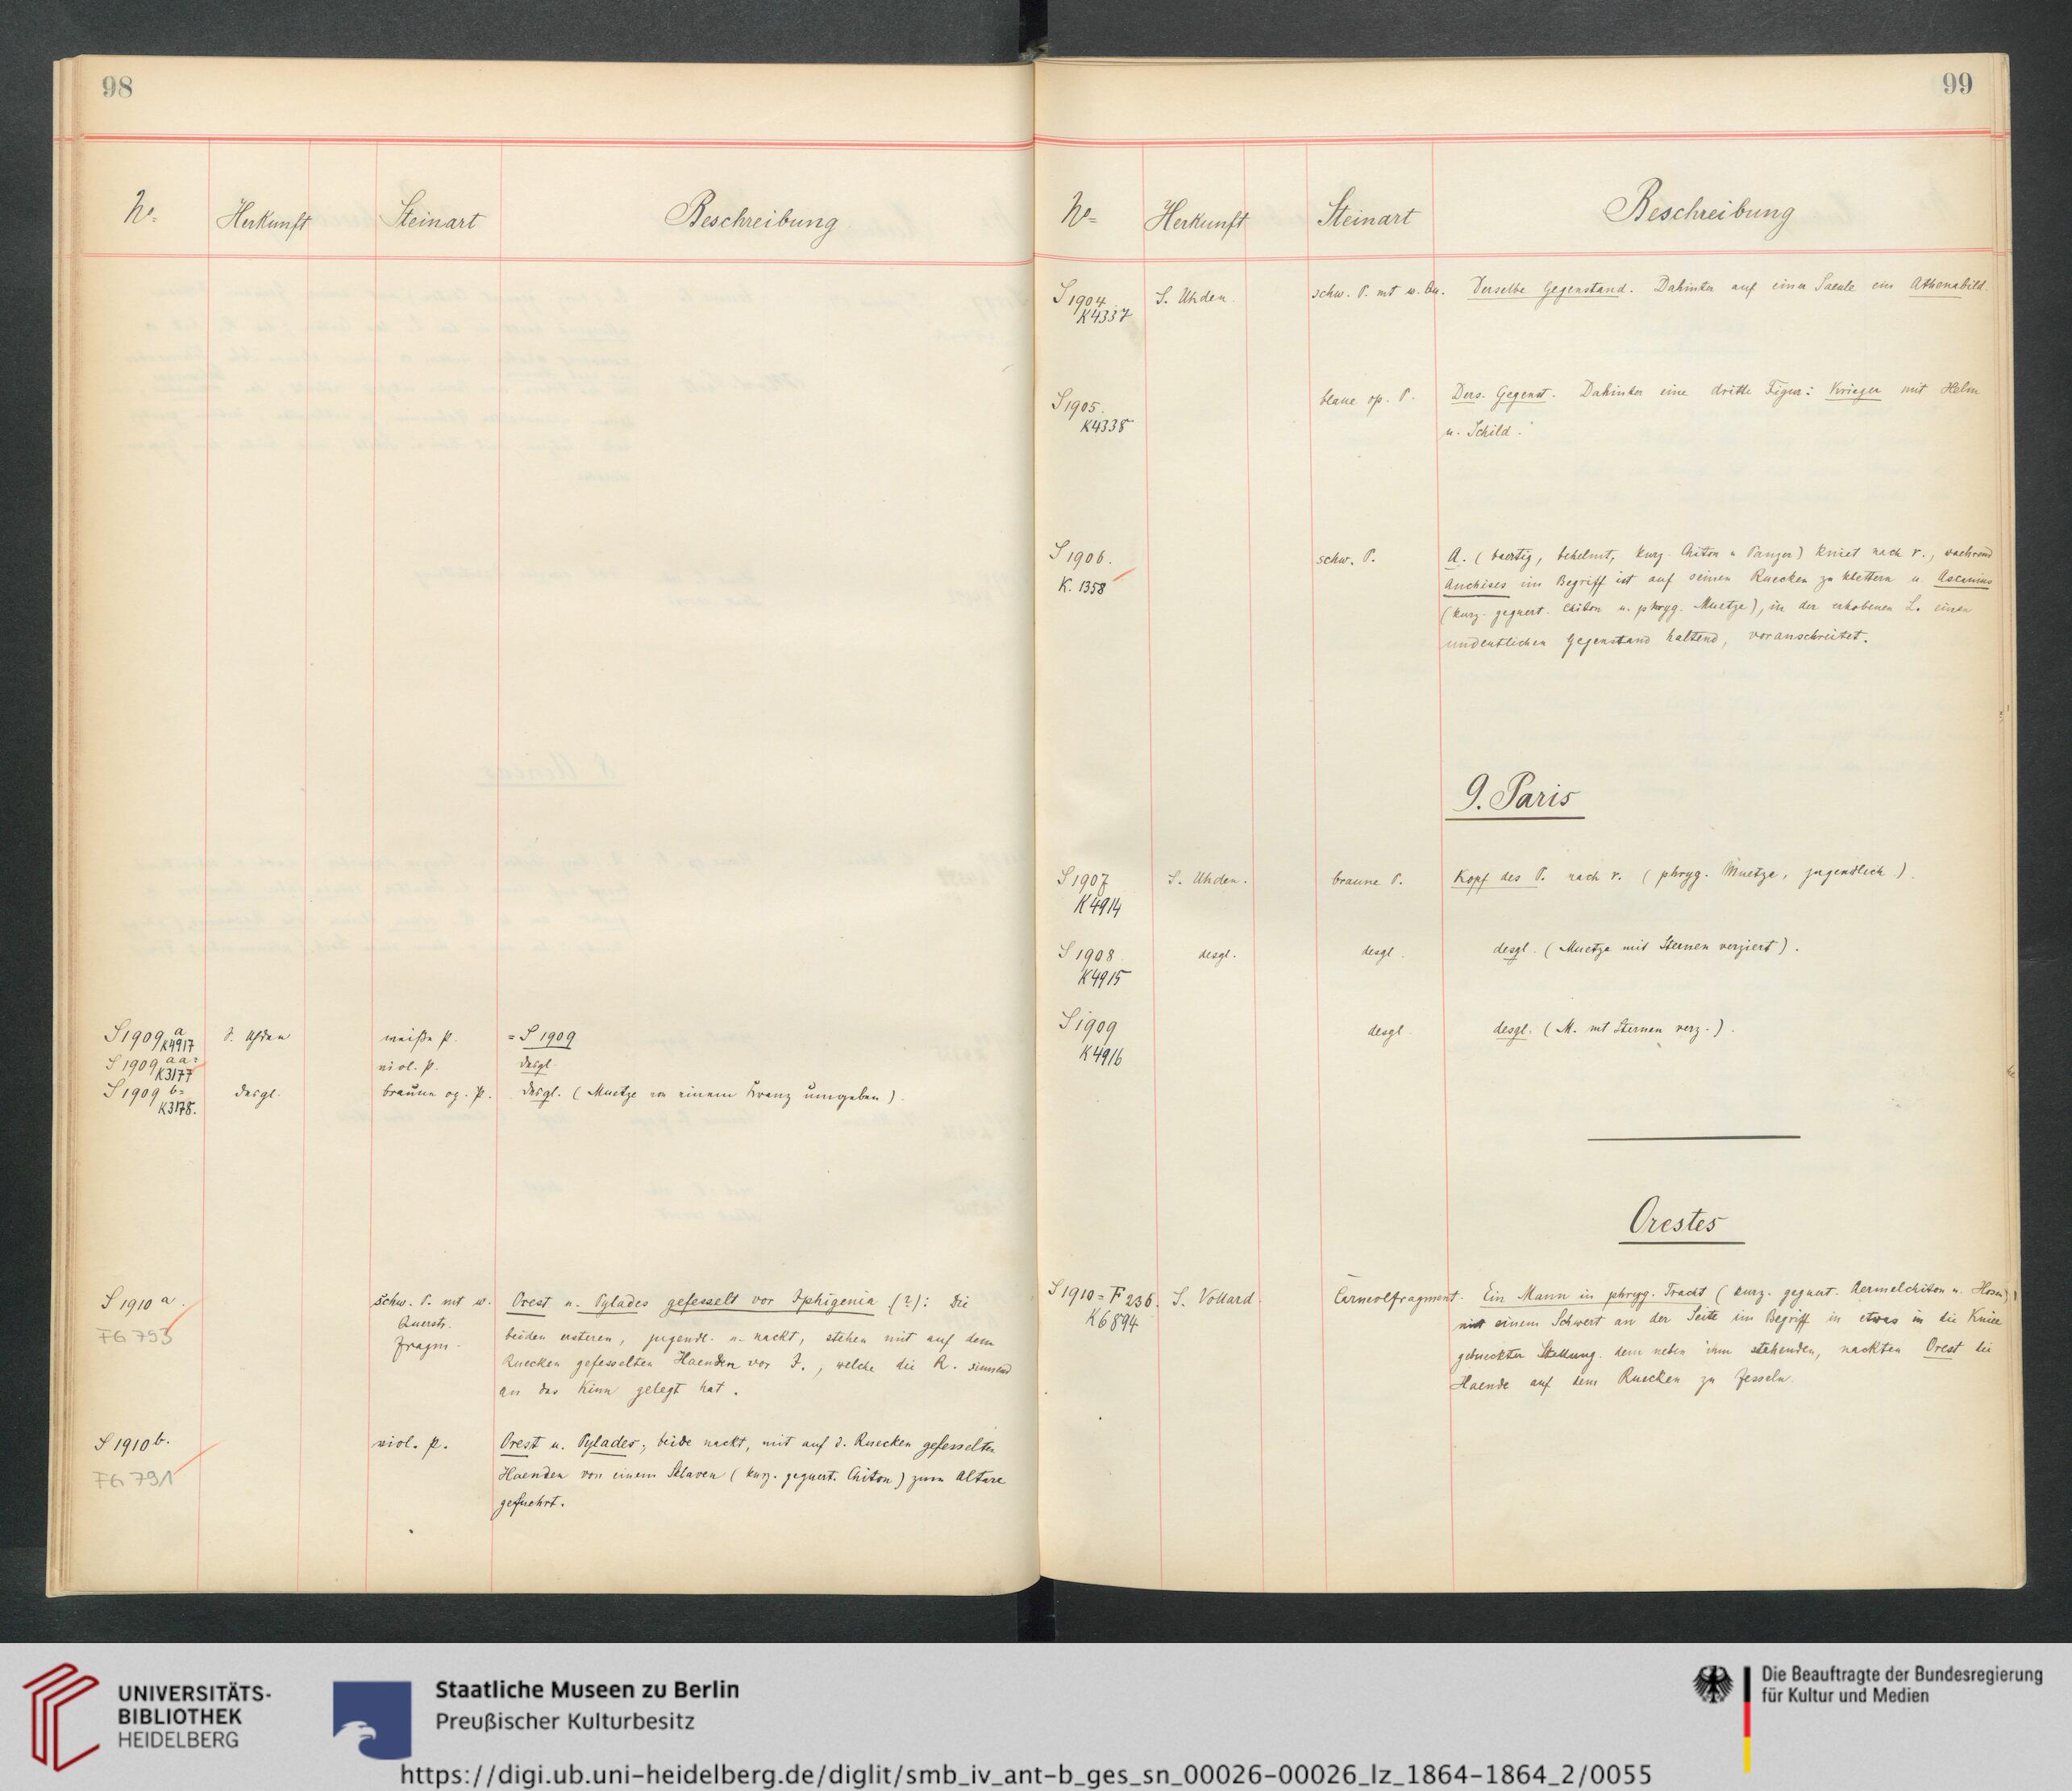 98
No. Herkunft Steinart Beschreibung
S 1909 a K4917 S. Uhden weiße P. = S 1909
S 1909 aa = K3177 viol. P. desgl.
S 1909 b = K3178. desgl. braune op. P. desgl. (Muetze von einem Kranz umgeben).
S 1910 a. schw. P. mt w. Orest u. Pylades gefesselt vor Iphigenia (?): Die
FG 793 Querstr. beiden ersteren, jugendl. u. nackt, stehen mit auf dem
Fragm. Ruecken gefesselten Haenden vor I., welche die R. sinnend
an das Kinn gelegt hat.
S 1910 b. viol. P. Orest u. Pylades, beide nackt, mit auf d. Ruecken gefesselten
FG 791 Haenden von einem Sklaven (kurz. geguert. Chiton) zum Altare
gefuehrt.
99
No. Herkunft Steinart Beschreibung
S 1904. S. Uhden. schw. P. mt w. Qu. Derselbe Gegenstand. Dahinter auf einer Saeule ein Athenabild.
K4337
S 1905. blaue op. P. Ders. Gegenst. Dahinter eine dritte Figur: Krieger mit Helm
K4338 u. Schild.
S 1906. schw. P. A. (baertig, behelmt, kurz. Chiton u Panzer) kniet nach r., waehrend
K. 1358 Anchises im Begriff ist auf seinen Ruecken zu klettern u. Ascanius
(kurz. geguert. Chiton u. phryg. Muetze), in der erhobenen L. einen
undeutlichen Gegenstand haltend, voranschreitet.
9. Paris
S 1907 S. Uhden. braune P. Kopf des P. nach r. (phryg. Muetze, jugendlich).
K4914
S 1908 desgl. desgl. desgl. (Muetze mit Sternen verziert).
K4915
S 1909 desgl. desgl. (M. mt Sternen verz.).
K4916
Orestes
S 1910 = F 236. S. Vollard. Carneolfragment. Ein Mann in phryg. Tracht (kurz. geguert. Aermelchiton u. Hosen)
K6894 mit einem Schwert an der Seite im Begriff in etwas in die Kniee
gebueckter Stellung dem neben ihm stehenden, nackten Orest die
Haende auf dem Ruecken zu fesseln.
UNIVERSITÄTS-
BIBLIOTHEK
HEIDELBERG
Staatliche Museen zu Berlin
Preußischer Kulturbesitz
Die Beauftragte der Bundesregierung
für Kultur und Medien
https://digi.ub.uni-heidelberg.de/diglit/smb_iv_ant-b_ges_sn_00026-00026_lz_1864-1864_2/0055